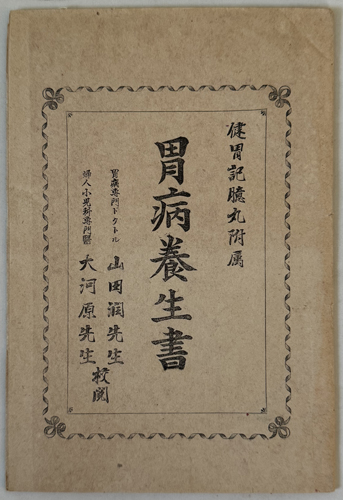 健胃記臆丸附属
胃病養生書
胃病専門ドクトル 山田潤先生
婦人小児科専門医 大河原先生
校閲